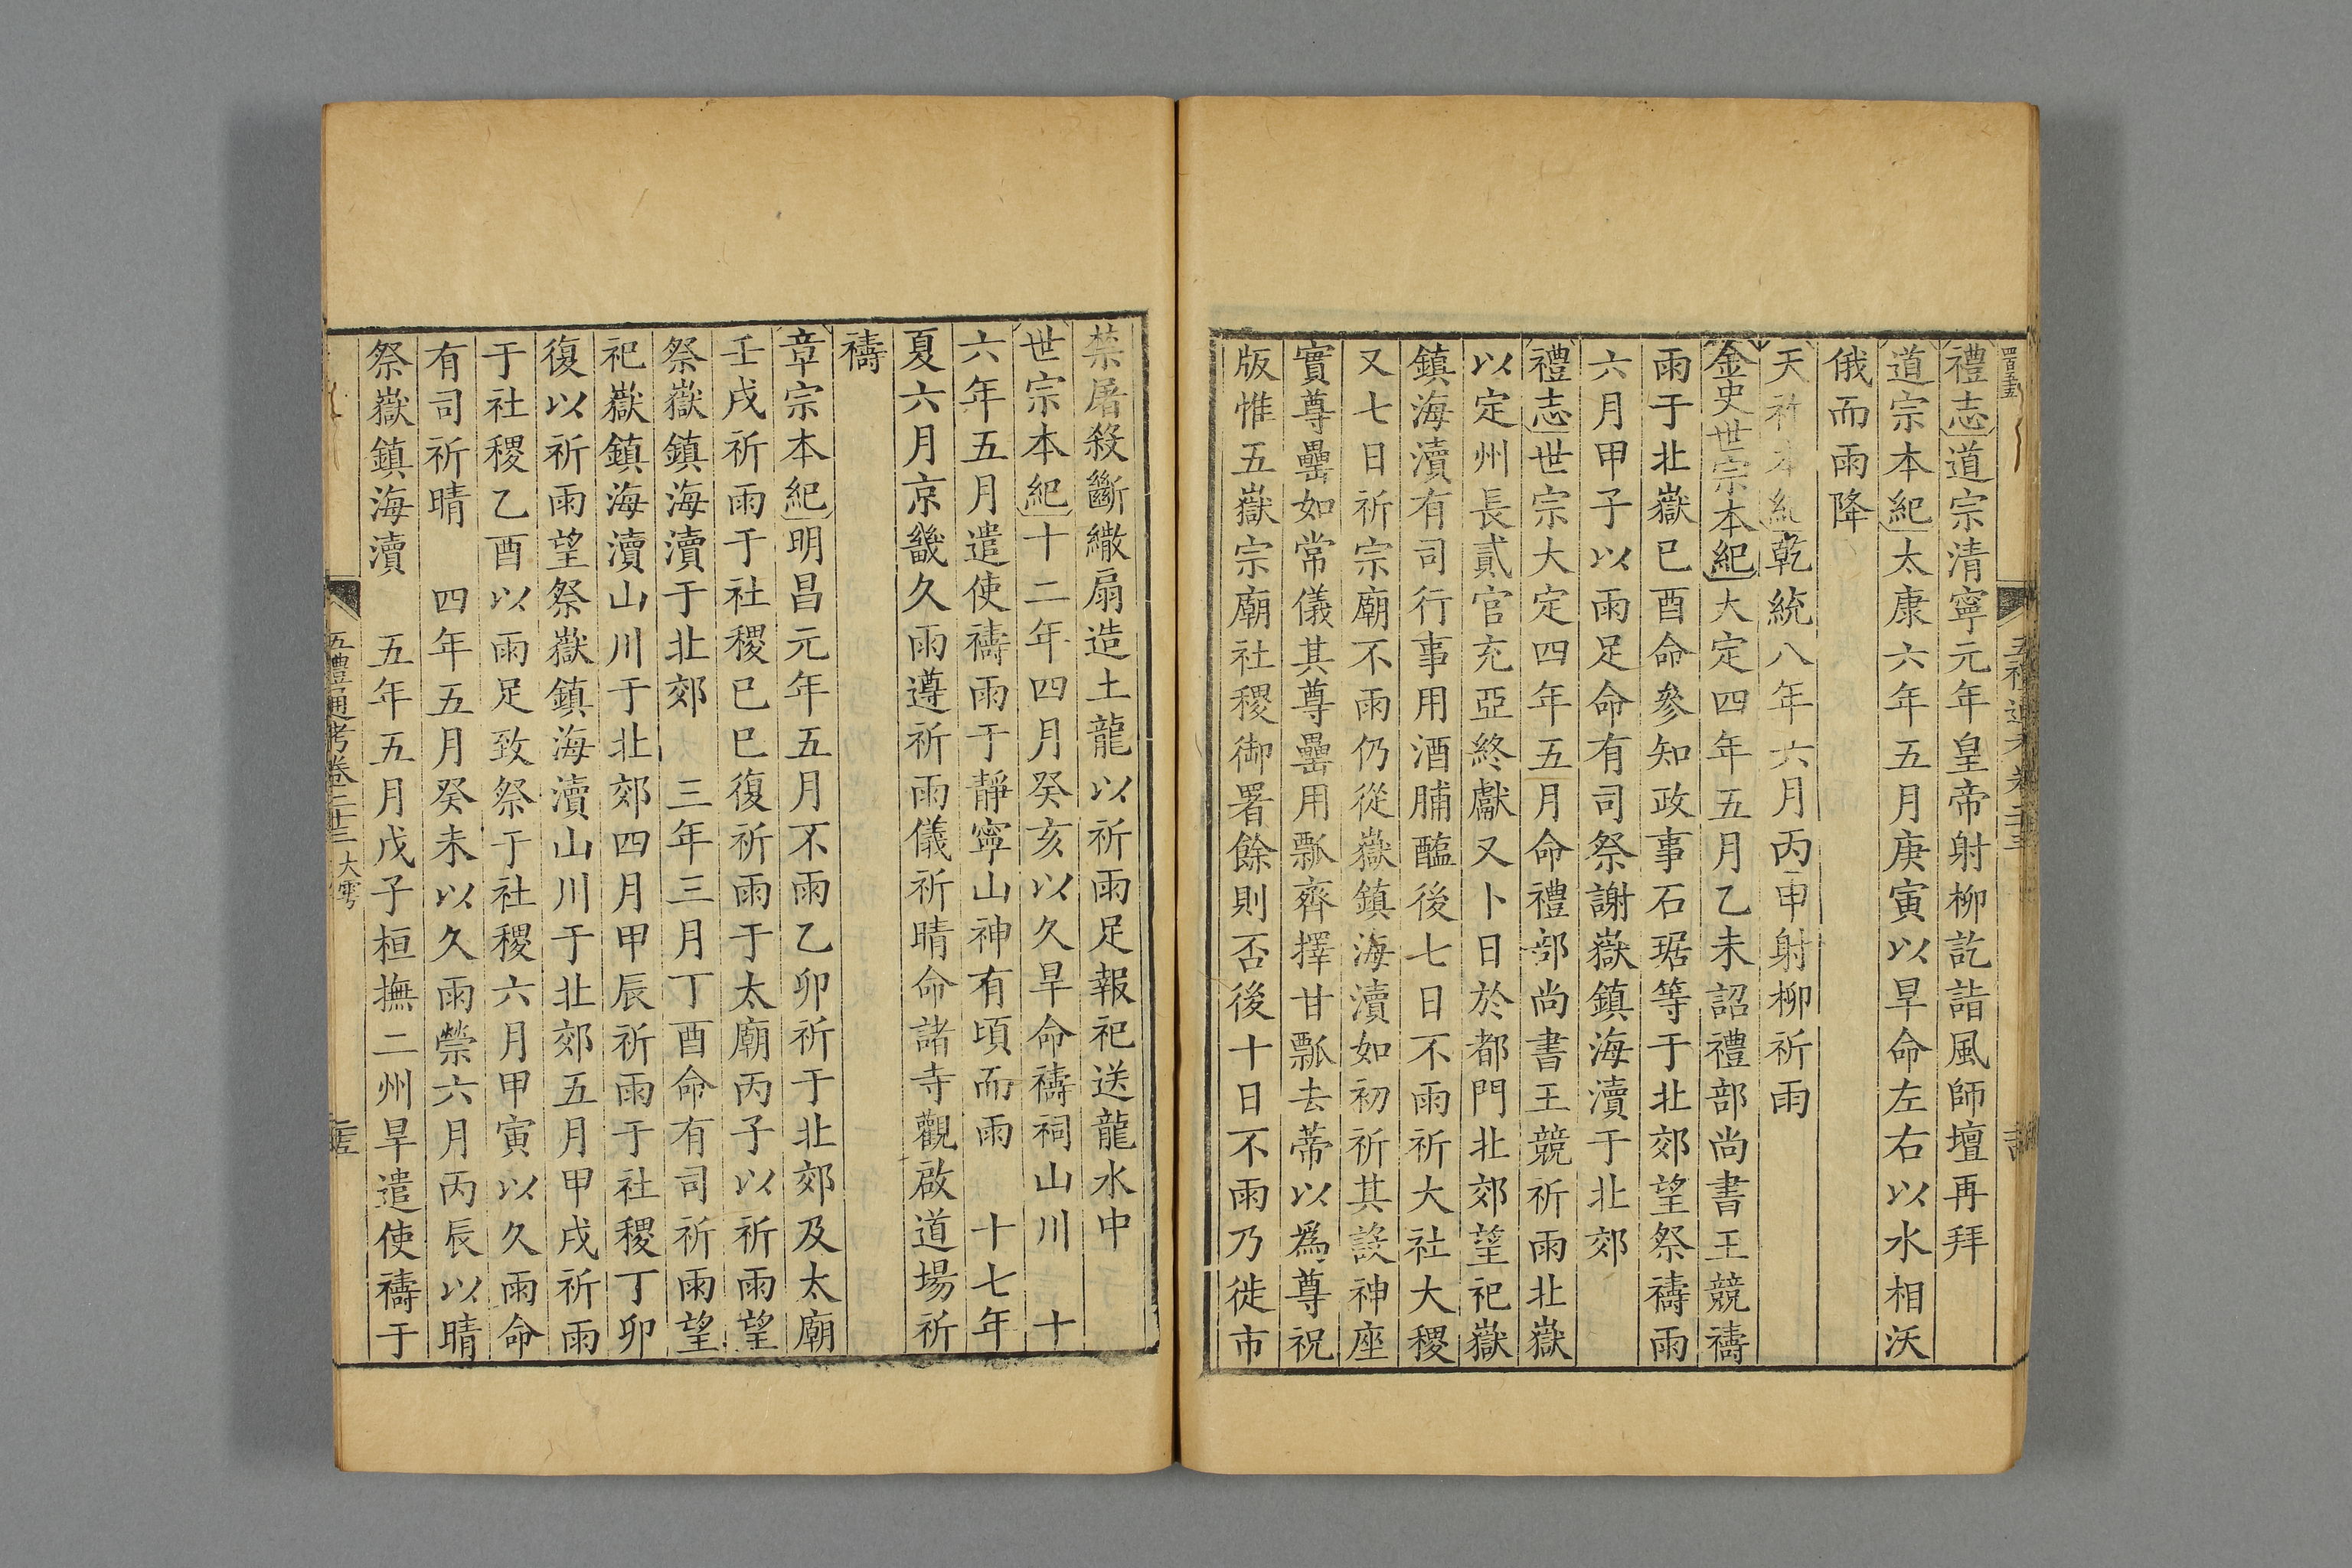 禮志道宗清寧元年皇帝射柳訖詣風師壇再拜
道宗本紀太康六年五月庚寅以旱命左右以水相沃
俄而雨降
天祚本紀乾統八年六月丙申射柳祈雨
金史世宗本紀大定四年五月乙未詔禮部尚書王競禱
雨于北嶽巳酉命參知政事石琚等于北郊望祭禱雨
六月甲子以雨足命有司祭謝嶽鎮海瀆于北郊
禮志世宗大定四年五月命禮部尚書王競祈雨北嶽
以定州長貳官充亞終獻又卜日於都門北郊望祀嶽
鎮海瀆有司行事用酒脯醢後七日不雨祈大社大稷
又七日祈宗廟不雨仍從嶽鎮海瀆如初祈其設神座
實尊罍如常儀其尊罍用瓢齊擇甘瓢去蒂以爲尊祝
版惟五嶽宗廟社稷御署餘則否後十日不雨乃徙市
禁屠殺斷繖扇造土龍以祈雨足報祀送龍水中
世宗本紀十二年四月癸亥以久旱命禱祠山川　十
六年五月遣使禱雨于靜寧山神有頃而雨　十七年
夏六月京畿久雨遵祈雨儀祈晴命諸寺觀啟道場祈
禱
章宗本紀明昌元年五月不雨乙卯祈于北郊及太廟
壬戌祈雨于社稷巳巳復祈雨于太廟丙子以祈雨望
祭嶽鎮海瀆于北郊　三年三月丁酉命有司祈雨望
祀嶽鎮海瀆山川于北郊四月甲辰祈雨于社稷丁卯
復以祈雨望祭嶽鎮海瀆山川于北郊五月甲戌祈雨
于社稷乙酉以雨足致祭于社稷六月甲寅以久雨命
有司祈晴　四年五月癸未以久雨禜六月丙辰以晴
祭嶽鎮海瀆　五年五月戊子桓撫二州旱遣使禱于
五禮通考卷二十三　大雩